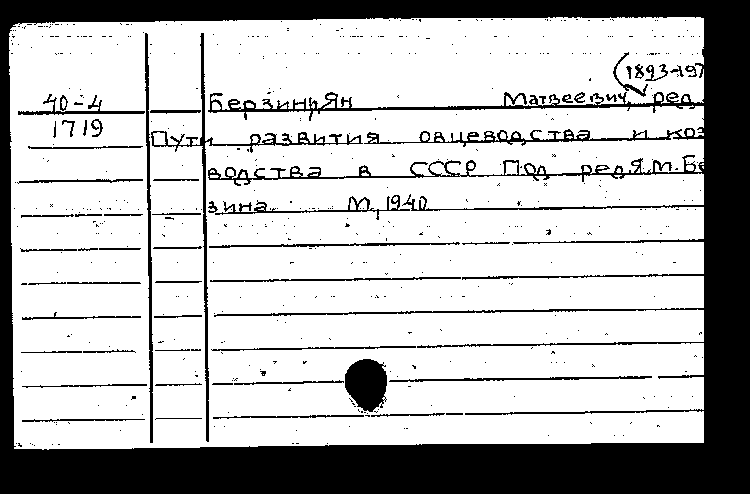 (1893-197
40-4 Берзинь, Ян Матвеевич, ред.
1719 Пути развития овцеводства и коз
водства в СССР Под ред.Я.М.Бе
зина М., 1940